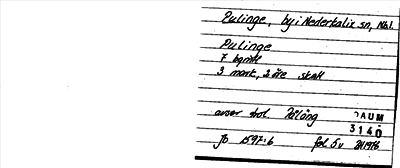 Pulinge, by i Nederkalix sn, Nbl.
Pulinge
7 bönder
3 mark, 2 öre skatt
avser trol. Påläng
DAUM
3140
Jo 1597:6 fol 5v